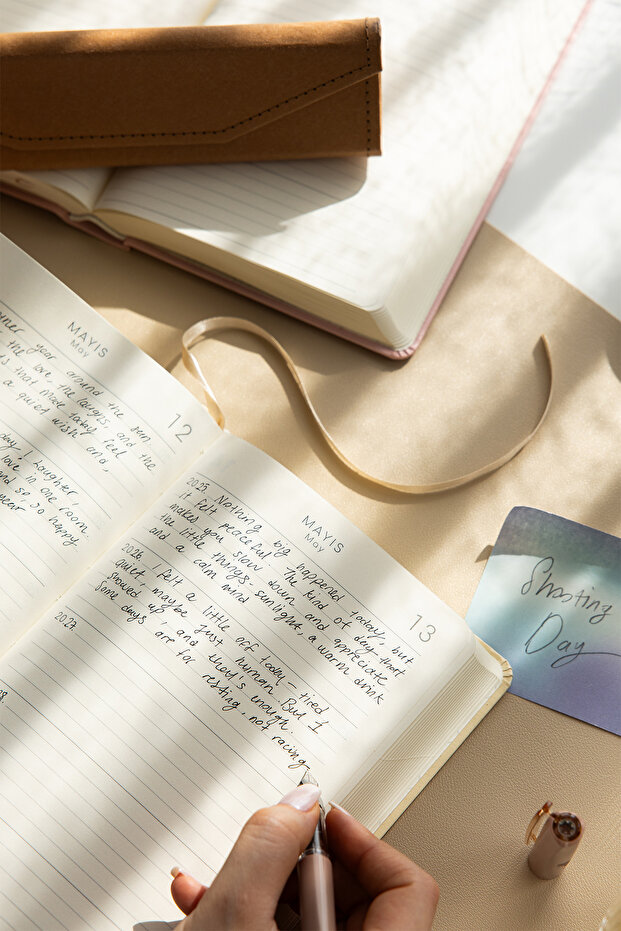 MAYIS
May
12
ner year around the sun.
the love, the laughs, and the
s that made today feel
a quiet wish and,
day. Laughter,
love in one room.
and so so happy.
year
MAYIS
May
13
2025 Nothing big happened today, but
it felt peaceful. The kind of day that
makes you slow down and appreciate
the little things, sunlight, a warm drink
and a calm mind
2026 I felt a little off today, tired
quiet, maybe just human. But I
showed up, and they's enough.
Some days are for
resting, not racing.
2027
Shooting
Day